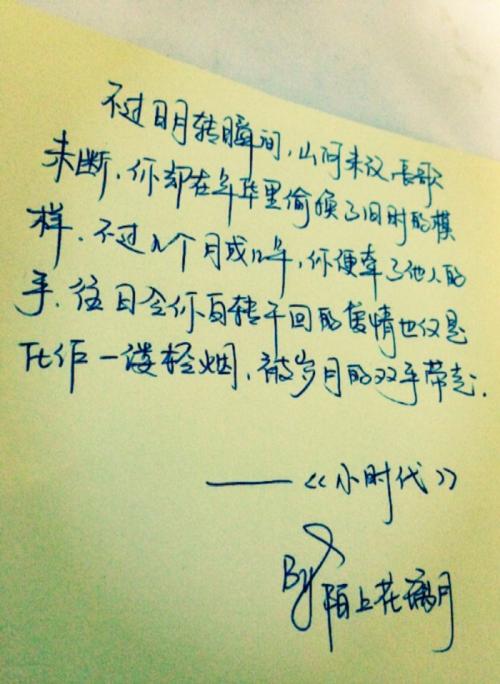 不过日月转瞬间,山河未改,长歌
未断,你却在年华里偷换了旧时的模
样.不过几个月或几年,你便牵了他人的
手.往日令你百转千回的爱情也仅是
化作一缕轻烟,被岁月的双手带走.
——《小时代》
By 陌上花璃月